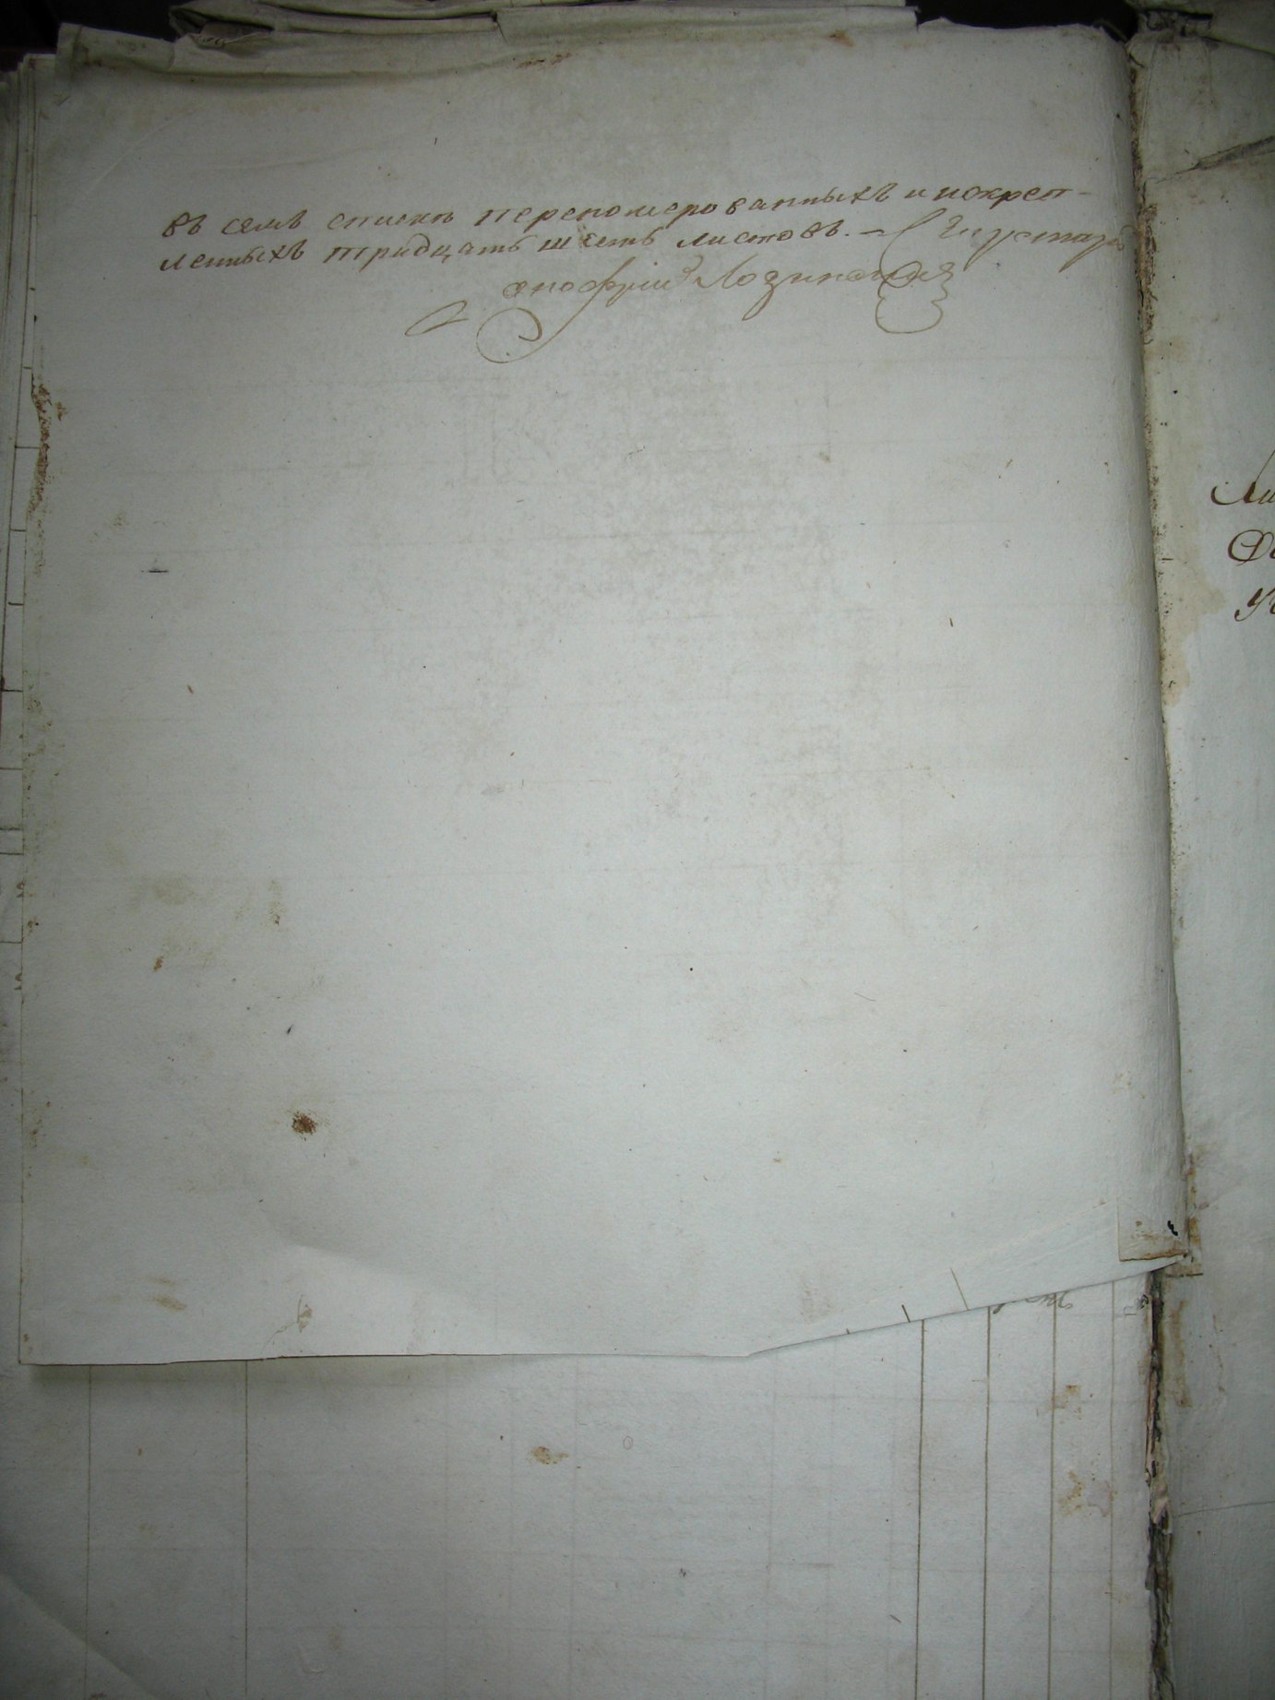 въ семъ списки перепомерованныхъ и искреп-
ленныхъ тридцать шесть листовъ. —
Онофрий Лозинский
Ли